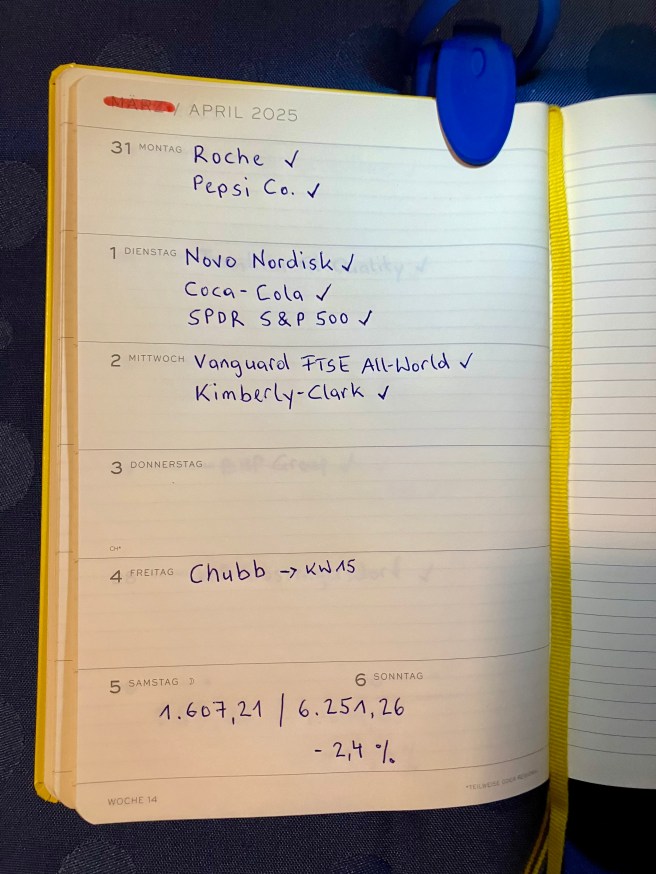 MÄRZ / APRIL 2025
31 MONTAG Roche ✓
Pepsi Co. ✓
1 DIENSTAG Novo Nordisk ✓
Coca-Cola ✓
SPDR S&P 500 ✓
2 MITTWOCH Vanguard FTSE All-World ✓
Kimberly-Clark ✓
3 DONNERSTAG
CH*
4 FREITAG Chubb → KW15
5 SAMSTAG ☽ 6 SONNTAG
1.607,21 | 6.251,26
- 2,4 %
WOCHE 14
*TEILWEISE ODER REGIONAL